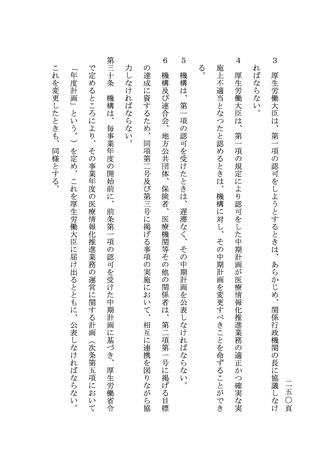 二五〇頁
３　厚生労働大臣は、第一項の認可をしようとするときは、あらかじめ、関係行政機関の長に協議しなけ
ればならない。
４　厚生労働大臣は、第一項の規定により認可をした中期計画が医療情報化推進業務の適正かつ確実な実
施上不適当となつたと認めるときは、機構に対し、その中期計画を変更すべきことを命ずることができ
る。
５　機構は、第一項の認可を受けたときは、遅滞なく、その中期計画を公表しなければならない。
６　機構及び連合会、地方公共団体、保険者、医療機関等その他の関係者は、第二項第一号に掲げる目標
の達成に資するため、同項第二号及び第三号に掲げる事項の実施において、相互に連携を図りながら協
力しなければならない。
第三十条　機構は、毎事業年度の開始前に、前条第一項の認可を受けた中期計画に基づき、厚生労働省令
で定めるところにより、その事業年度の医療情報化推進業務の運営に関する計画（次条第五項において
「年度計画」という。）を定め、これを厚生労働大臣に届け出るとともに、公表しなければならない。
これを変更したときも、同様とする。